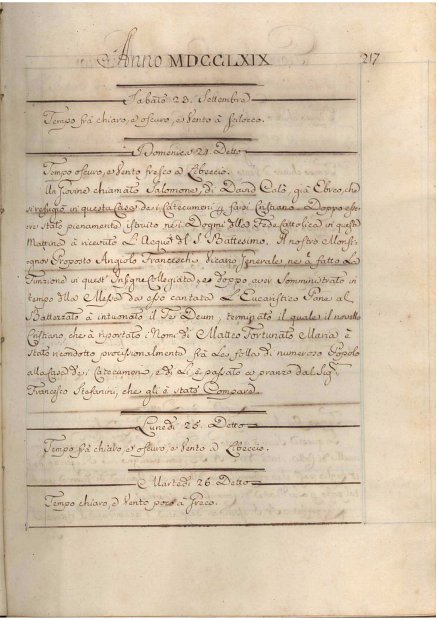 Anno MDCCLXIX
217
Sabato 23. Settembre
Tempo frà chiaro, e oscuro, e Vento à Scilocco.
Domenica 24. Detto
Tempo oscuro, e Vento fresco a Libeccio.
Un Giovine chiamato Salomone, di David Calò, già Ebreo, che
si refugiò in questa Casa de i Catecumeni p farsi Cristiano. Doppo esse-
re Stato pienamente istruito ne i Dogmi della Fede Cattolica in questa
Mattina à ricevuto L'Acqua del S. Battesimo. Il nostro Monsi-
gnor Proposto Angiolo Franceschi, Vicario Generale ne à fatto La
Funzione in quest' Insigne Collegiata, e doppo aver Somministrato in
tempo della Messa da esso cantata L'Eucaristico Pane al
Battezzato à intuonato il Te Deum, terminato il quale il novello
Cristiano, che à riportato i Nomi di Matteo Fortunato Maria è
Stato ricondotto processionalmente frà la folla di numeroso Popolo
alla Casa de i Catecumeni, e di Lì è passato a pranzo dal Sig.
Francesco Stefanini, che gli è stato Compare.
Lunedì 25. Detto
Tempo frà chiaro, e oscuro, e Vento a Libeccio.
Martedì 26. Detto
Tempo chiaro, e Vento poco a Greco.